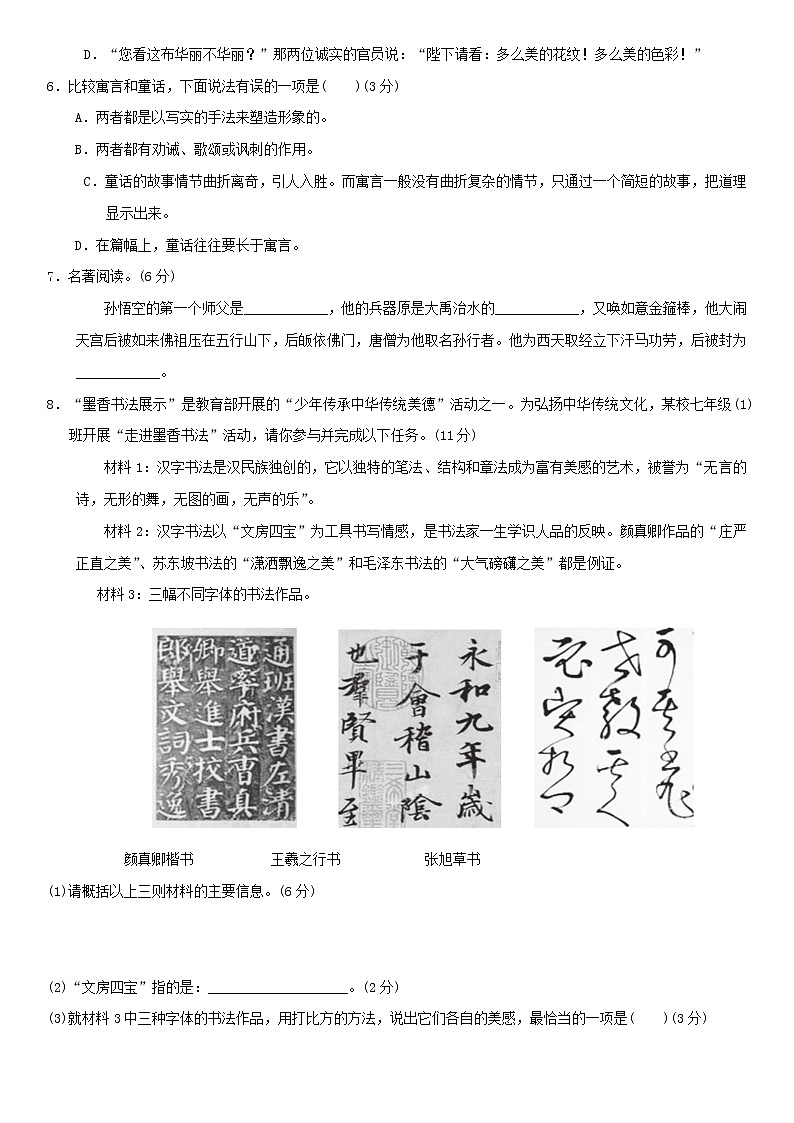 D．“您看这布华丽不华丽？”那两位诚实的官员说：“陛下请看：多么美的花纹！多么美的色彩！”
6．比较寓言和童话，下面说法有误的一项是(　　)(3分)
A．两者都是以写实的手法来塑造形象的。
B．两者都有劝诫、歌颂或讽刺的作用。
C．童话的故事情节曲折离奇，引人入胜。而寓言一般没有曲折复杂的情节，只通过一个简短的故事，把道理
显示出来。
D．在篇幅上，童话往往要长于寓言。
7．名著阅读。(6分)
孙悟空的第一个师父是____________，他的兵器原是大禹治水的____________，又唤如意金箍棒，他大闹
天宫后被如来佛祖压在五行山下，后皈依佛门，唐僧为他取名孙行者。他为西天取经立下汗马功劳，后被封为
____________。
8．“墨香书法展示”是教育部开展的“少年传承中华传统美德”活动之一。为弘扬中华传统文化，某校七年级(1)
班开展“走进墨香书法”活动，请你参与并完成以下任务。(11分)
材料1：汉字书法是汉民族独创的，它以独特的笔法、结构和章法成为富有美感的艺术，被誉为“无言的
诗，无形的舞，无图的画，无声的乐”。
材料2：汉字书法以“文房四宝”为工具书写情感，是书法家一生学识人品的反映。颜真卿作品的“庄严
正直之美”、苏东坡书法的“潇洒飘逸之美”和毛泽东书法的“大气磅礴之美”都是例证。
材料3：三幅不同字体的书法作品。
通班漢書左清
道率府兵曹真
卿舉進士校書
郎舉文詞秀逸
永和九年歲
于會稽山陰
也羣賢畢至
颜真卿楷书　王羲之行书　张旭草书
(1)请概括以上三则材料的主要信息。(6分)
(2)“文房四宝”指的是：____________________。(2分)
(3)就材料3中三种字体的书法作品，用打比方的方法，说出它们各自的美感，最恰当的一项是(　　)(3分)